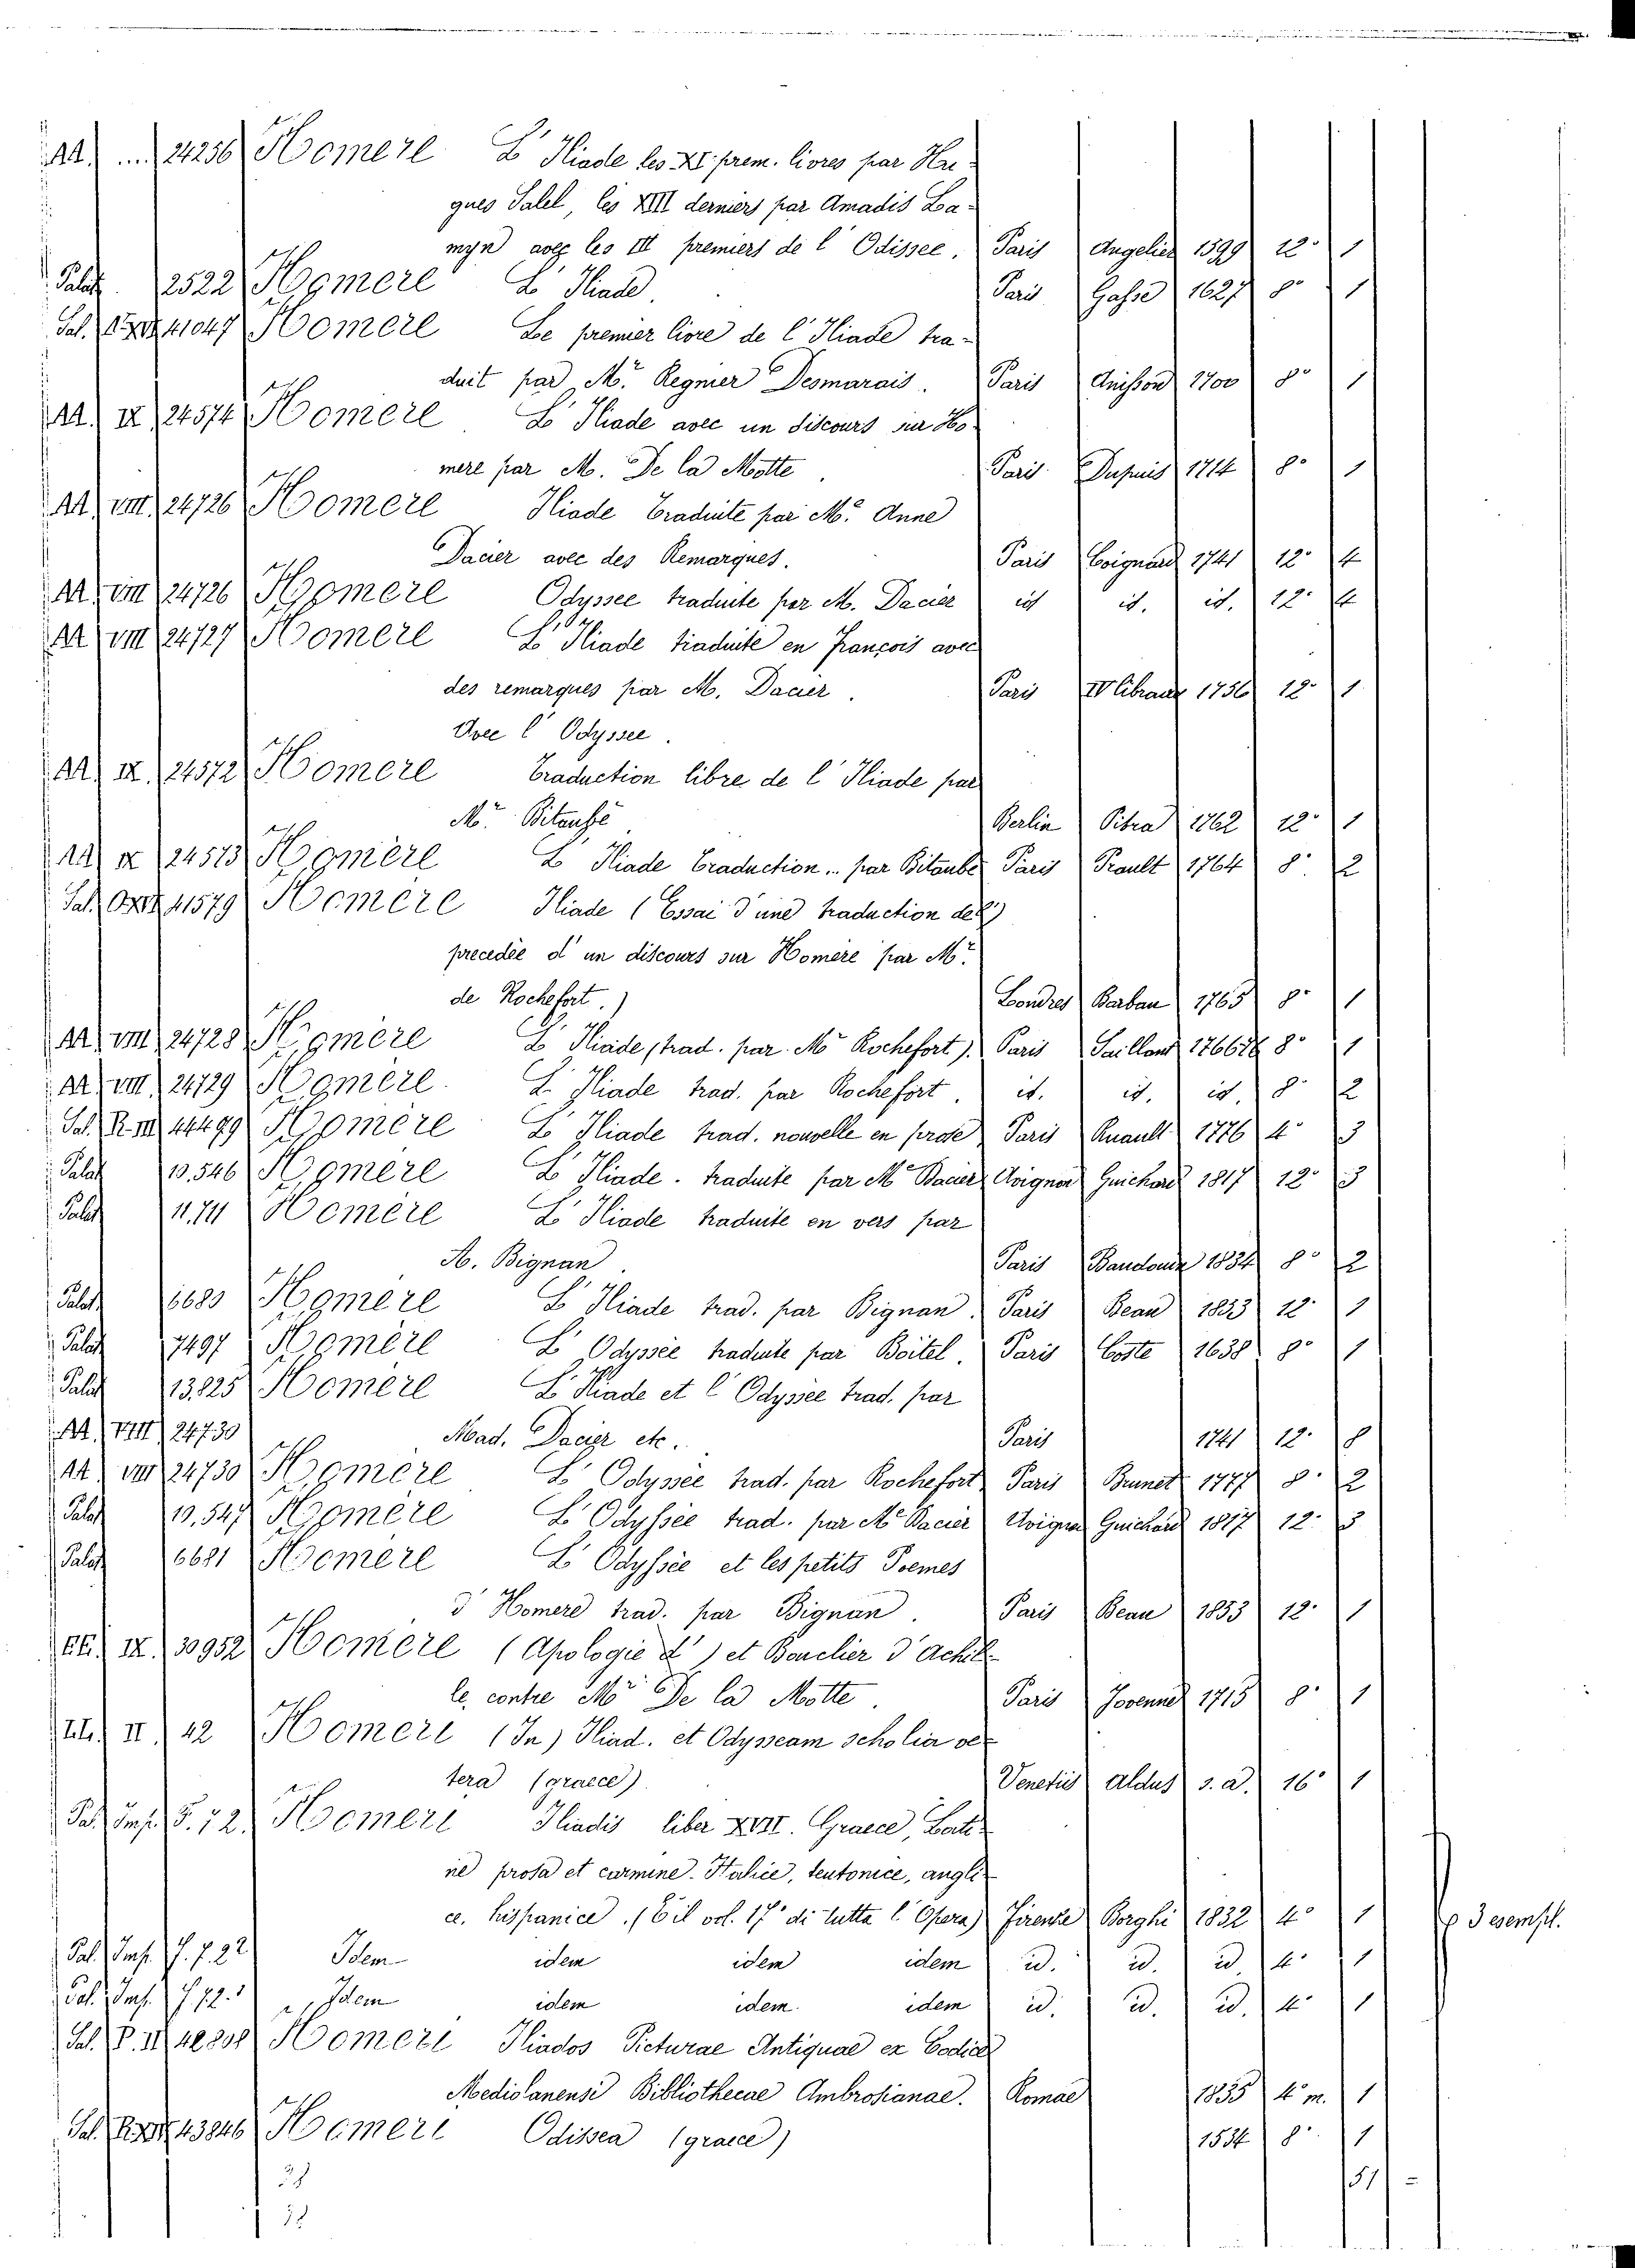 24256 Homere L' Iliade les XI prem. livres par Hu-
gues Salel, les XIII derniers par Amadis Ja-
myn avec les III premiers de l' Odissee. Paris Angelier 1599 12° 1
Palat. 2522 Homere L' Iliade. Paris Gasse 1627 8° 1
Sal. 41047 Homere Le premier livre de l' Iliade tra-
duit par Mr. Regnier Desmarais. Paris Anisson 1700 8° 1
IX 24574 Homere L' Iliade avec un discours sur Ho-
mere par M. De la Motte. Paris Dupuis 1714 8° 1
VIII 24726 Homere Iliade Traduite par Me. Anne
Dacier avec des Remarques. Paris Coignard 1741 12° 4
VIII 24726 Homere Odyssee traduite par M. Dacier id id. id. 12° 4
VIII 24727 Homere L' Iliade traduite en François avec
des remarques par M. Dacier. Paris IV libraux 1756 12° 1
Avec l' Odyssee.
IX 24572 Homere Traduction libre de l' Iliade par
Mr. Bitaubé Berlin Pitra 1762 12° 1
IX 24573 Homère L' Iliade Traduction... par Bitaubé Paris Prault 1764 8° 2
Sal. 41579 Homère Iliade (Essai d' une traduction de l')
precedée d' un discours sur Homère par Mr.
de Rochefort.) Londres Barbau 1765 8° 1
VIII 24728 Homère L' Iliade (trad. par Mr Rochefort). Paris Saillant 8° 1
VIII 24729 Homère. L' Iliade trad. par Rochefort. id. id. id. 8° 2
Sal. R. III 44499 Homère L' Iliade trad. nouvelle en prose Paris Ruault 1776 4° 3
Palat 10.546 Homère L' Iliade. traduite par Me Dacier Avignon Guichard 1817 12° 3
Palat 11.711 Homère L' Iliade traduite en vers par
A. Bignan Paris Baudouin 1834 8° 2
Palat 6680 Homère L' Iliade trad. par Bignan. Paris Beau 1853 12° 1
Palat 7497 Homère L' Odyssée traduite par Boitel. Paris Coste 1638 8° 1
Palat 13.825 Homère L' Iliade et l' Odyssee trad. par
VIII 24730 Mad. Dacier etc. Paris 1741 12° 8
VIII 24730 Homère L' Odyssée trad. par Rochefort Paris Brunet 1777 8° 2
Palat 10,547 Homère L' Odyssée trad. par Me Dacier Avignon Guichard 1817 12° 3
Palat 6681 Homère L' Odyssée et les petits Poemes
d' Homere trad. par Bignan. Paris Beau 1853 12° 1
IX. 30952 Homère (Apologie d') et Bouclier d' Achil-
le, contre Mr De la Motte. Paris Jovenne 1715 8° 1
II 42 Homeri (In) Iliad. et Odysseam scholia ve-
tera (graece) Venetiis Aldus s. a. 16° 1
Pal. Imp. F. 12. Homeri Iliadis liber XVII. Graece, Lati-
ne prosa et carmine. Italice, teutonice, angli-
ce, hispanice. (È il vol. 17° di tutta l' Opera) Firenze Borghi 1832 4° 1 3 esempl.
Pal. Imp. F. 7. 22 Idem idem idem idem id. id. id. 4° 1
Pal. Imp. F. 12. Idem idem idem. idem id. id. id. 4° 1
Sal. P. II 42808 Homeri Iliados Picturae Antiquae ex Codice
Mediolanensi Bibliothecae Ambrosianae. Romae 1835 4° m. 1
Sal. 43846 Homeri Odissea (graece) 1534 8°. 1
51 -